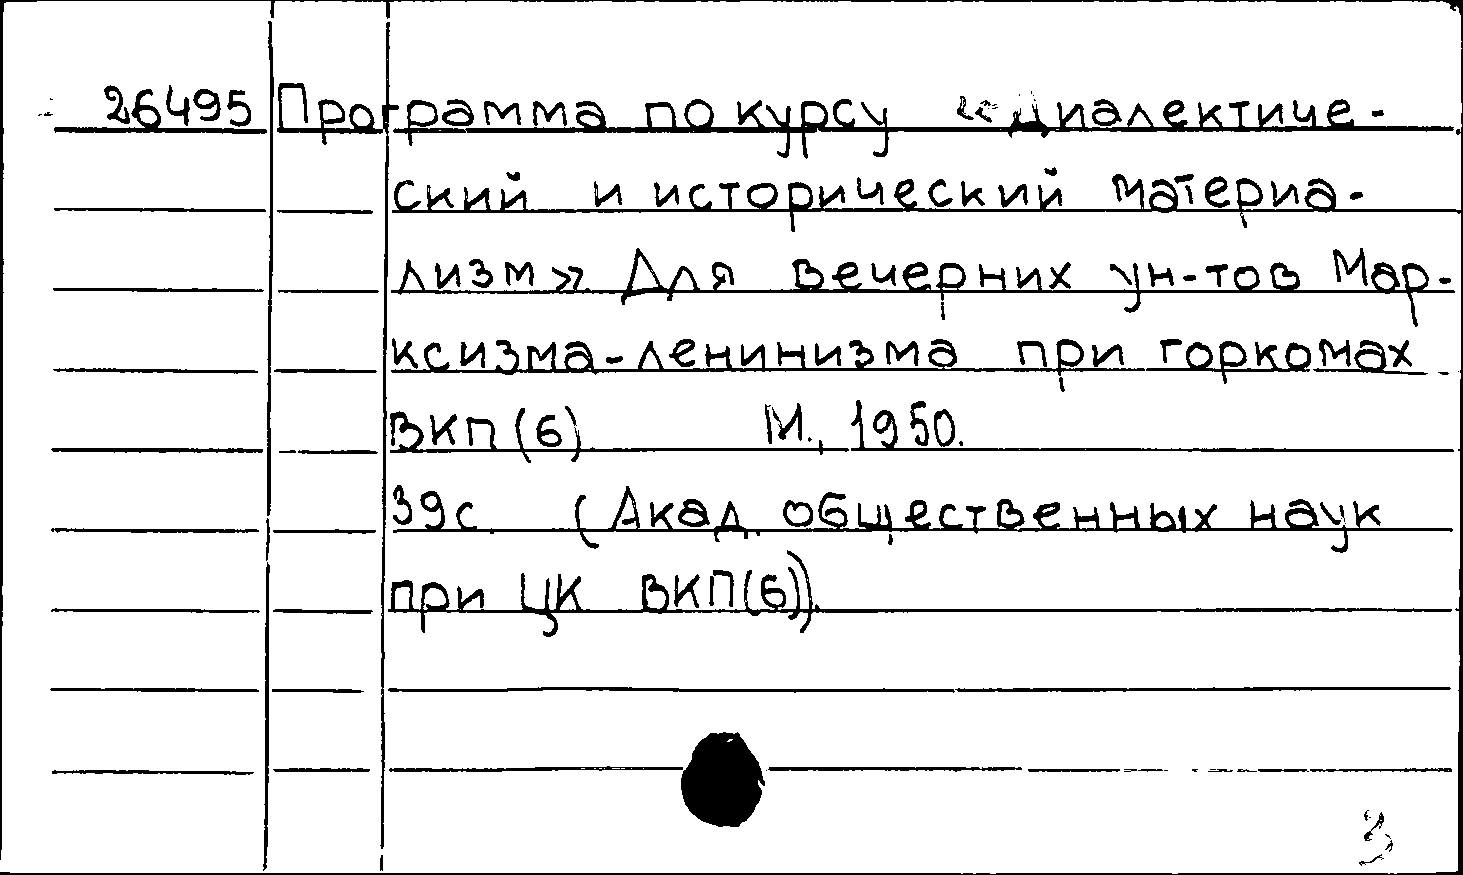 26495 Программа по курсу «Диалектиче-
ский и исторический материа-
лизм» Для вечерних ун-тов Мар-
ксизма-ленинизма при горкомах
ВКП(б) М., 1950.
39с (Акад. общественных наук
при ЦК ВКП(б)).
3